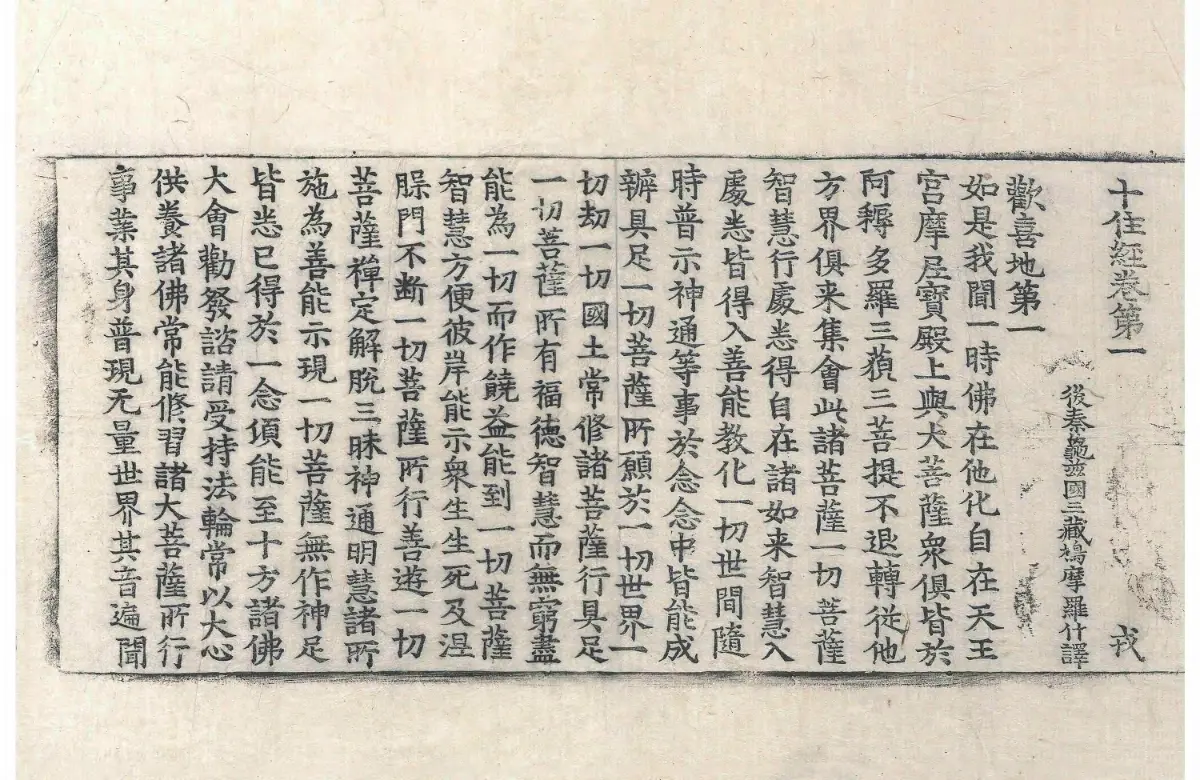 十住經卷第一 戎
後秦龜茲國三藏鳩摩羅什譯
歡喜地第一
如是我聞一時佛在他化自在天王
宮摩尼寶殿上與大菩薩衆俱皆於
阿耨多羅三藐三菩提不退轉從他
方界俱来集會此諸菩薩一切菩薩
智慧行處悉得自在諸如来智慧入
處悉皆得入善能教化一切世間隨
時普示神通等事於念念中皆能成
辦具足一切菩薩所願於一切世界一
切劫一切國土常修諸菩薩行具足
一切菩薩所有福德智慧而無窮盡
能為一切而作饒益能到一切菩薩
智慧方便彼岸能示衆生生死及涅
槃門不断一切菩薩所行善遊一切
菩薩禪定解脫三昧神通明慧諸所
施為善能示現一切菩薩無作神足
皆悉已得於一念頃能至十方諸佛
大會勸發諮請受持法輪常以大心
供養諸佛常能修習諸大菩薩所行
事業其身普現无量世界其音遍聞